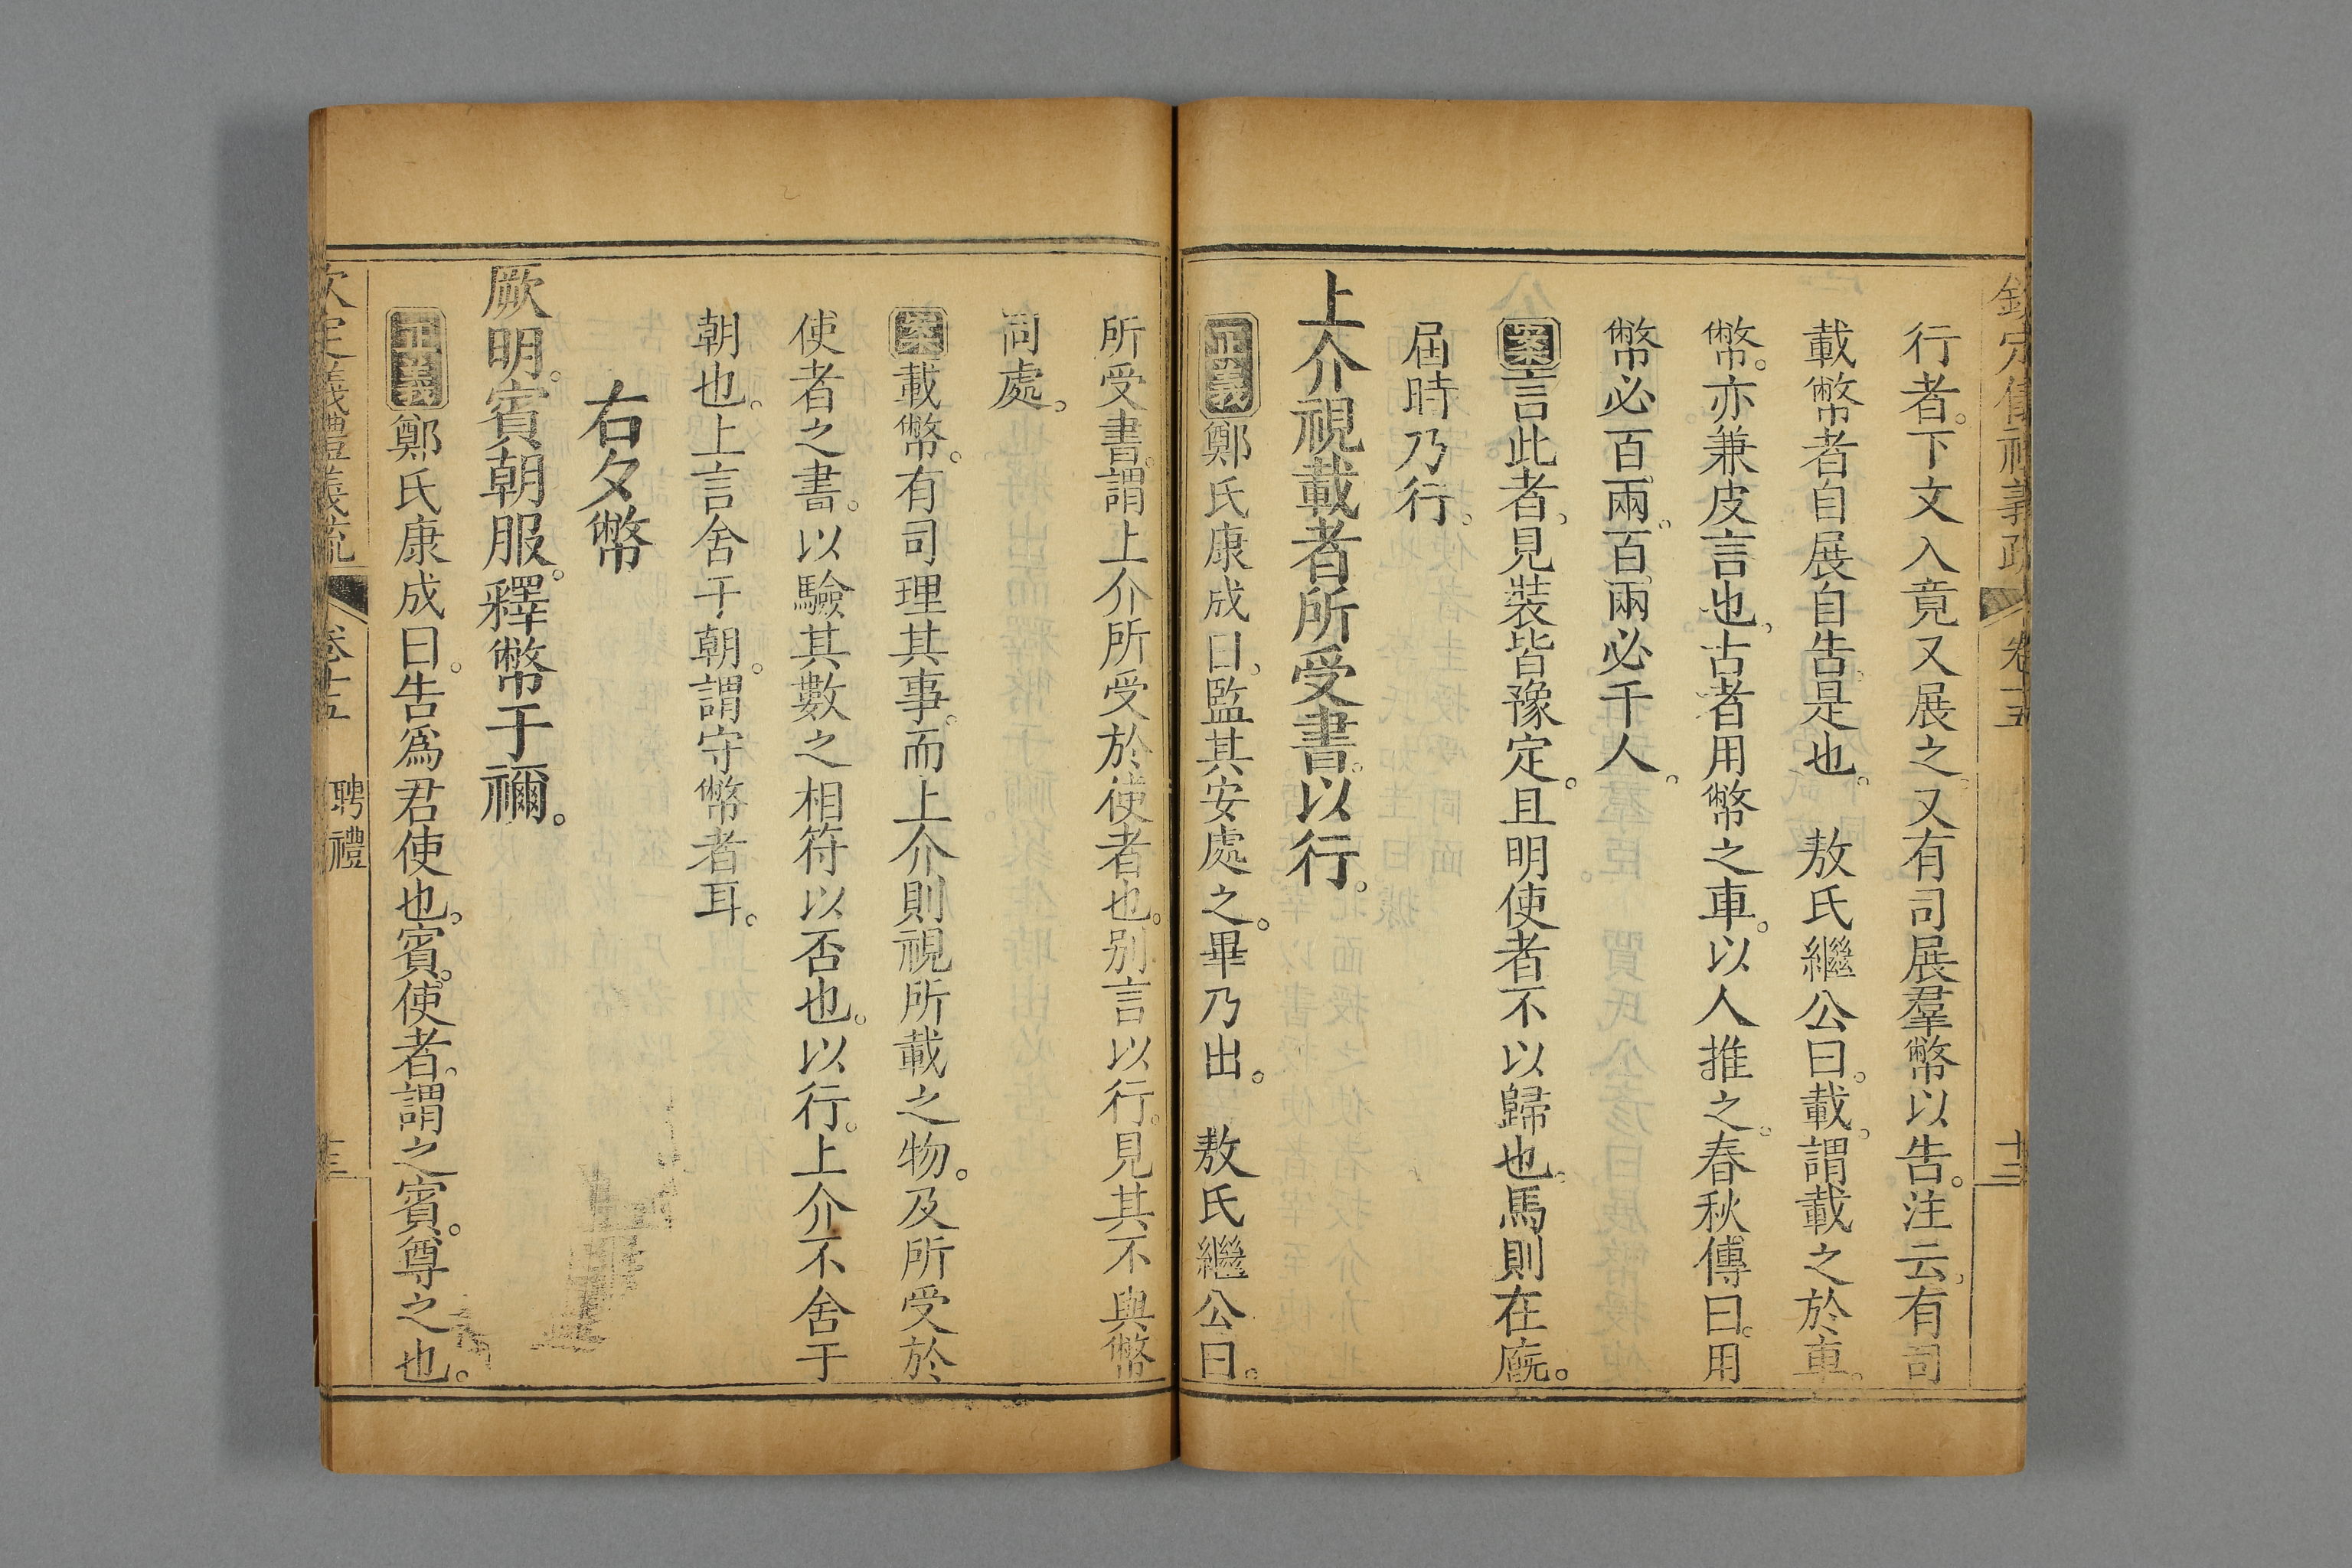 欽定儀禮義疏 卷十五 十三
行者。下文入竟又展之。又有司展羣幣以告。注云。有司
載幣者自展自告是也。 敖氏繼公曰。載。謂載之於車。
幣。亦兼皮言也。古者用幣之車。以人推之。春秋傳曰。用
幣必百兩。百兩必千人。
案言此者。見裝皆豫定。且明使者不以歸也。馬則在廐。
屆時乃行。
上介視載者所受書。以行。
正義鄭氏康成曰。監其安處之。畢乃出。 敖氏繼公曰。
所受書。謂上介所受於使者也。別言以行。見其不與幣
同處。
案載幣。有司理其事。而上介則視所載之物。及所受於
使者之書。以驗其數之相符以否也。以行。上介不舍于
朝也。上言舍于朝。謂守幣者耳。
右夕幣
厥明。賓朝服。釋幣于禰。
正義鄭氏康成曰。告爲君使也。賓。使者。謂之賓。尊之也。
欽定儀禮義疏 卷十五 聘禮 十三